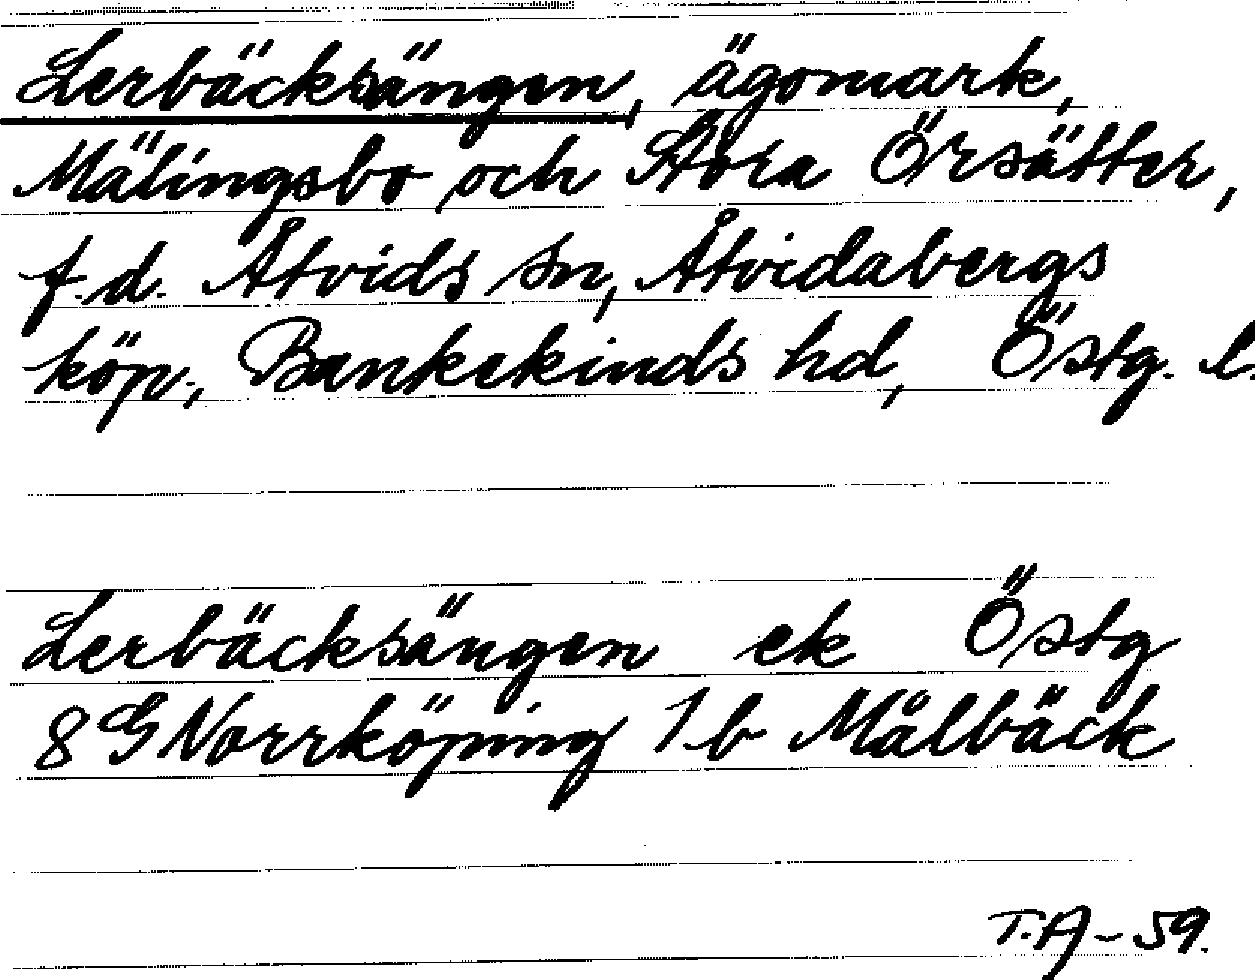 Lerbäcksängen, ägomark,
Mälingsbo och Stora Örsätter,
f.d. Åtvids sn, Åtvidabergs
köp., Bankekinds hd, Östg. l.
Lerbäcksängen ek Östg
8 G Norrköping 1 b Målbäck
T.A - 59.